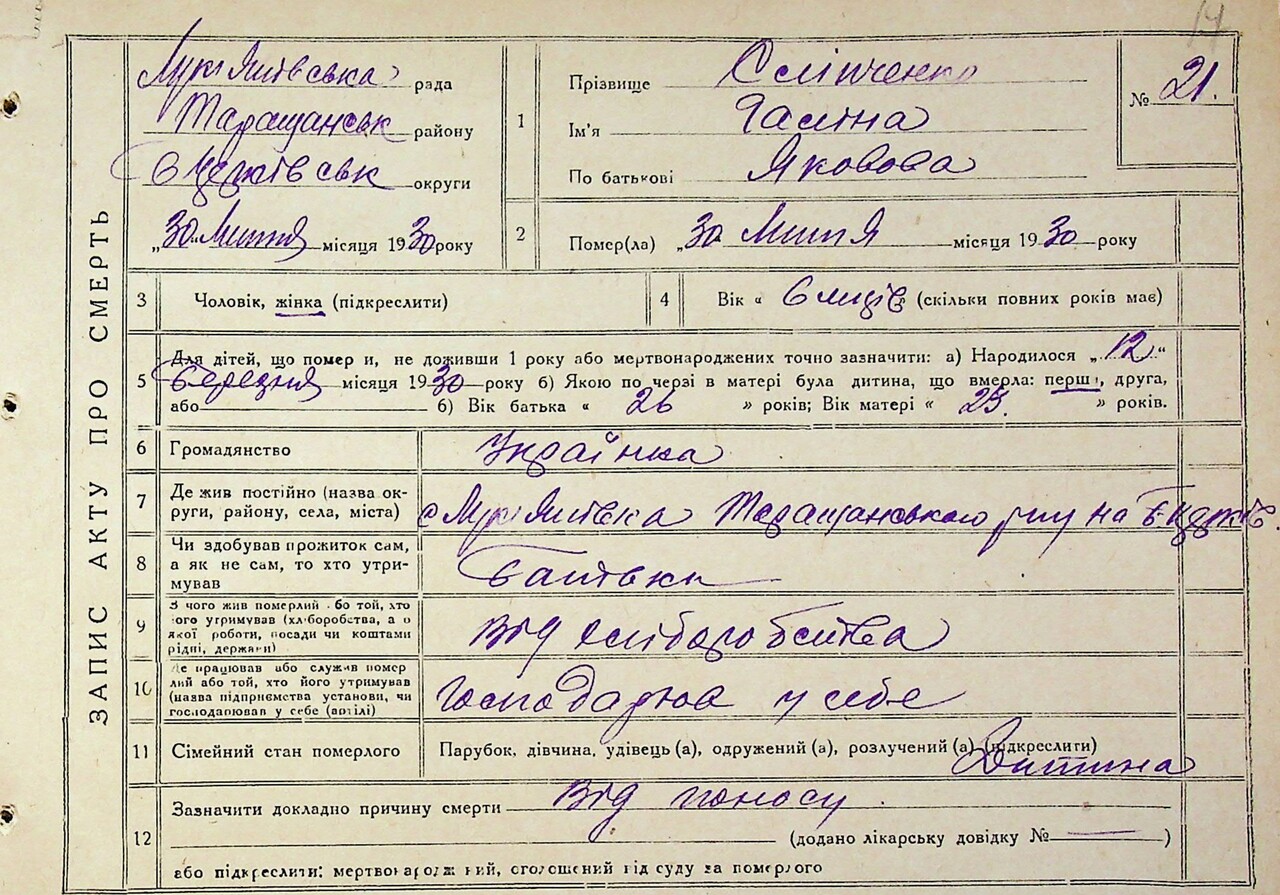 14
ЗАПИС АКТУ ПРО СМЕРТЬ
Лукʼянівська рада
Таращанськ району
Б Церківськ округи
„30 Липня місяця 1930 року
1
Прізвище Сліпченко
Ім'я Галина
По батькові Яковова
№ 21.
2
Помер(ла) „30 Липня місяця 1930 року
3
Чоловік, жінка (підкреслити)
4
Вік « (скільки повних років має)
5
Для дітей, що помер и, не доживши 1 року або мертвонароджених точно зазначити: а) Народилося „12“
Березня місяця 1930 року б) Якою по черзі в матері була дитина, що вмерла: перш, друга,
або б) Вік батька « 26 » років; Вік матері « 25. » років.
6
Громадянство Українка
7
Де жив постійно (назва ок-
руги, району, села, міста)
с Лукʼянівка Таращанського р-ну на Б Церків.
8
Чи здобував прожиток сам,
а як не сам, то хто утри-
мував
Батьки
9
З чого жив померлий бо той, хто
ого утримував (хліборобства, а о
якої роботи, посади чи коштами
рідні, держави)
від хліборобства
10
Де працював або служив помер
лий або той, хто його утримував
(назва підприємства установи, чи
господарював у себе (вдома)
Господарюв у себе
11
Сімейний стан померлого
Парубок, дівчина, удівець (а), одружений (а), розлучений (а) (підкреслити)
Дитина
12
Зазначити докладно причину смерти Від поносу
(додано лікарську довідку № — )
або підкреслити: мертвонародж ний, оголошений від суду за померлого